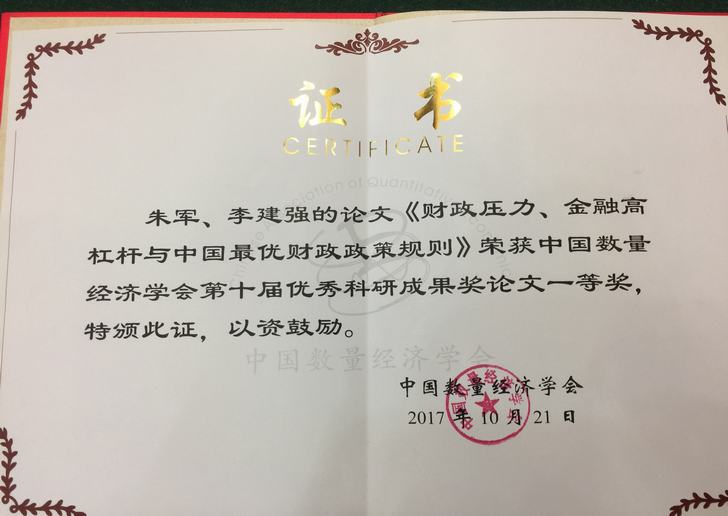 证 书
CERTIFICATE
朱军、李建强的论文《财政压力、金融高
杠杆与中国最优财政政策规则》荣获中国数量
经济学会第十届优秀科研成果奖论文一等奖，
特颁此证，以资鼓励。
中国数量经济学会
中国数量经济学会
2017 年 10 月 21 日